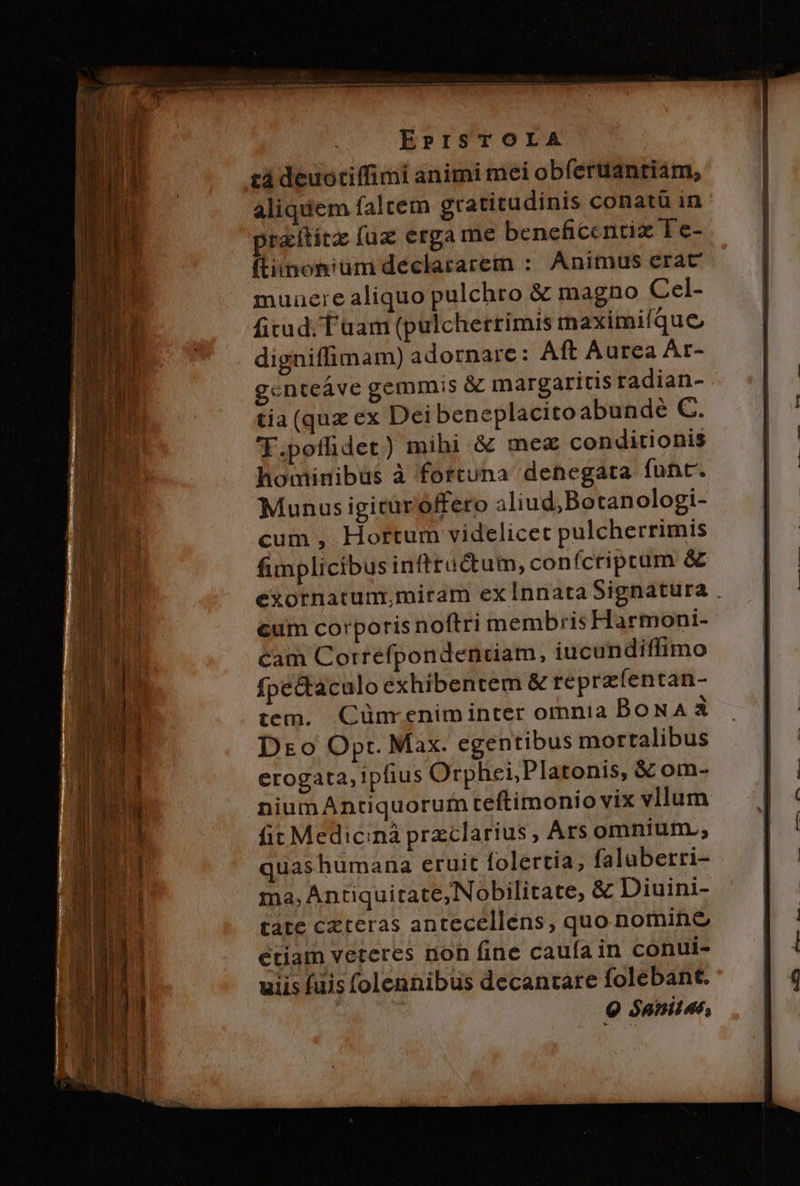 EPISTOLA
tâ deuotiſſimi animi mei obſeruantiam,
aliquem ſaltem gratitudinis conatû in
præſtitæ ſuæ erga me beneficentiæ Te-
ſtimonium declararem : Animus erat
munere aliquo pulchro & magno Cel-
ſitud. Tuam (pulcherrimis maximiſque
digniſſimam) adornare: Aſt Aurea Ar-
genteáve gemmis & margaritis radian-
tia (quæ ex Dei beneplacito abundè C.
T. poſſidet) mihi & meæ conditionis
hominibus à fortuna denegata ſunt.
Munus igitur offero aliud, Botanologi-
cum, Hortum videlicet pulcherrimis
ſimplicibus inſtructum, conſcriptum &
exornatum, miram ex Innata Signatura
cum corporis noſtri membris Harmoni-
cam Correſpondentiam, iucundiſſimo
ſpectaculo exhibentem & repræſentan-
tem. Cùm enim inter omnia BONA à
DEO Opt. Max. egentibus mortalibus
erogata, ipſius Orphei, Platonis, & om-
nium Antiquorum teſtimonio vix vllum
ſit Medicinâ præclarius, Ars omnium,
quas humana eruit ſolertia, ſaluberri-
ma, Antiquitate, Nobilitate, & Diuini-
tate cæteras antecellens, quo nomine
etiam veteres non ſine cauſa in conui-
uiis ſuis ſolennibus decantare ſolebant.
O Sanitas,